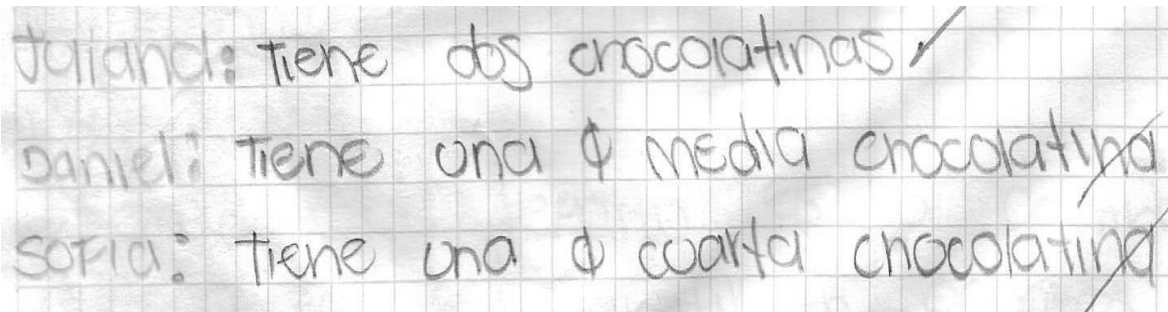 Juliana: Tiene dos chocolatinas
Daniel: Tiene una y media chocolatina
SOFIA: tiene una y cuarta chocolatina